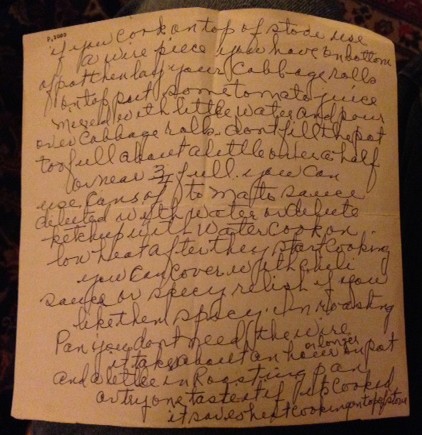 if you cook on top of stove use
a wire piece you have on bottom
of pot then lay your cabbage rolls
on top put some tomato juice
mixed with little water and pour
over cabbage rolls. dont fill the pot
too full about a little over a half
or near 3/4 full. you can
use cans of tomato sauce
deluted with water or delute
ketchup with water cook on
low heat after they start cooking
you can cover with chili
sauce or specy relish if you
like them spacy. in roasting
Pan you dont need the wire
it takes about an hour or longer in pot
and a little in Roasting pan
or try one taste it if its cooked
it saves heat cooking on top of stove